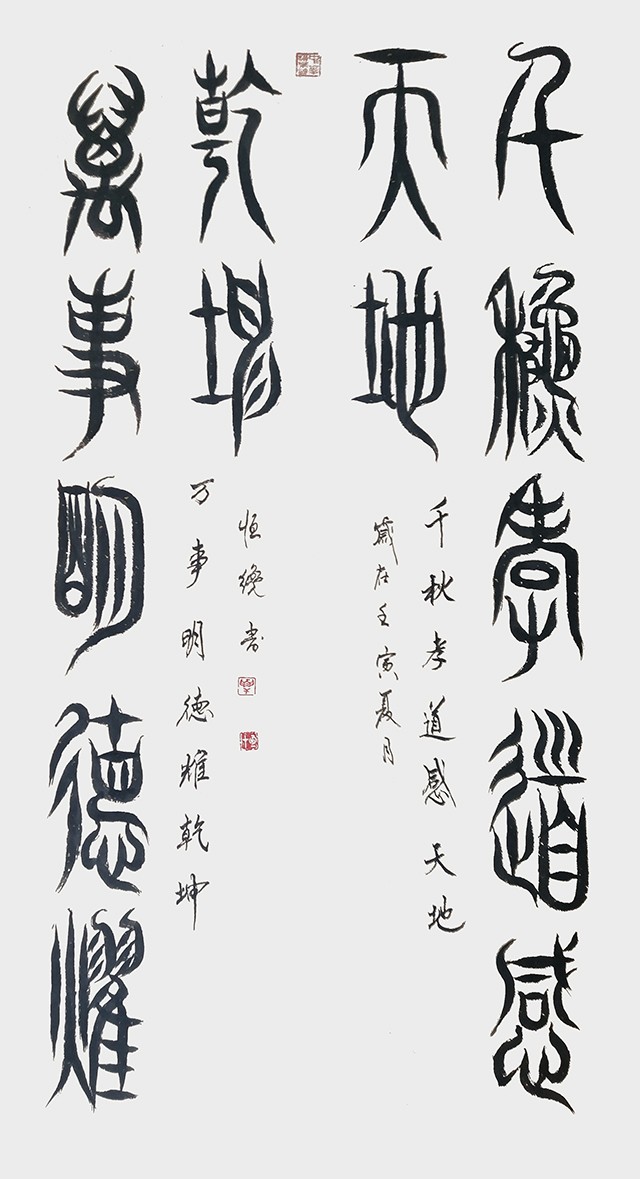 千龝孝道感
天地
千秋孝道感天地
歲在壬寅夏月
萬事明德耀
乾坤
万事明德耀乾坤
恒書